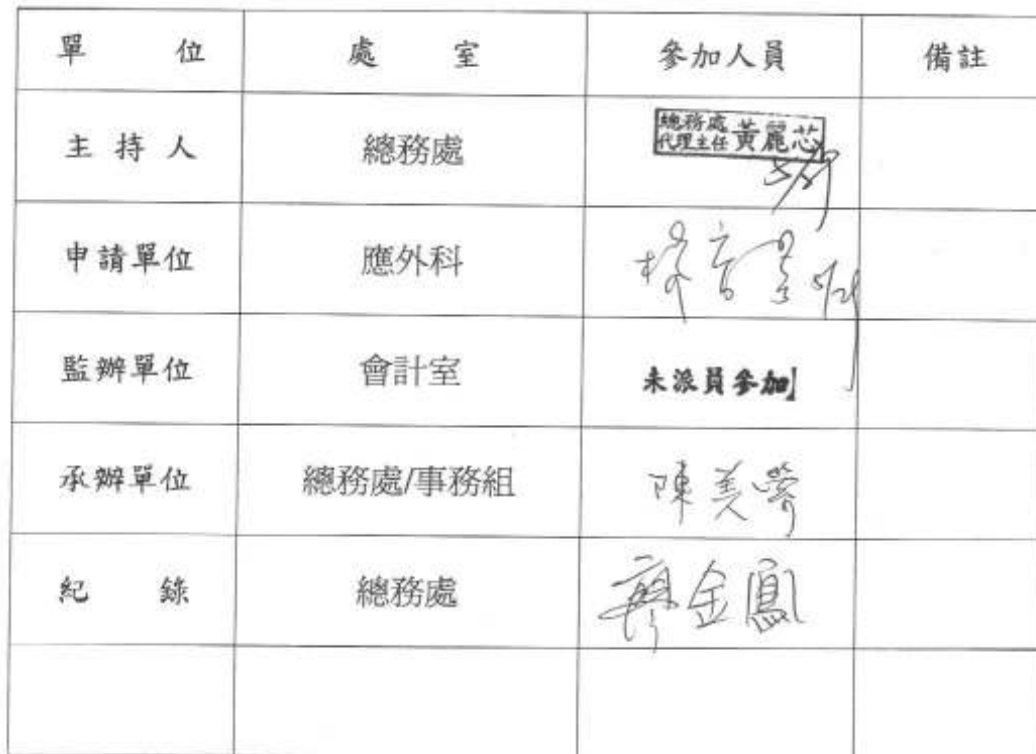 單 位 處 室 參加人員 備註
主 持 人 總務處 總務處 代理主任 黃麗芯
申請單位 應外科 5/21
監辦單位 會計室 未派員參加
承辦單位 總務處/事務組 陳美
紀 錄 總務處 廖金鳳